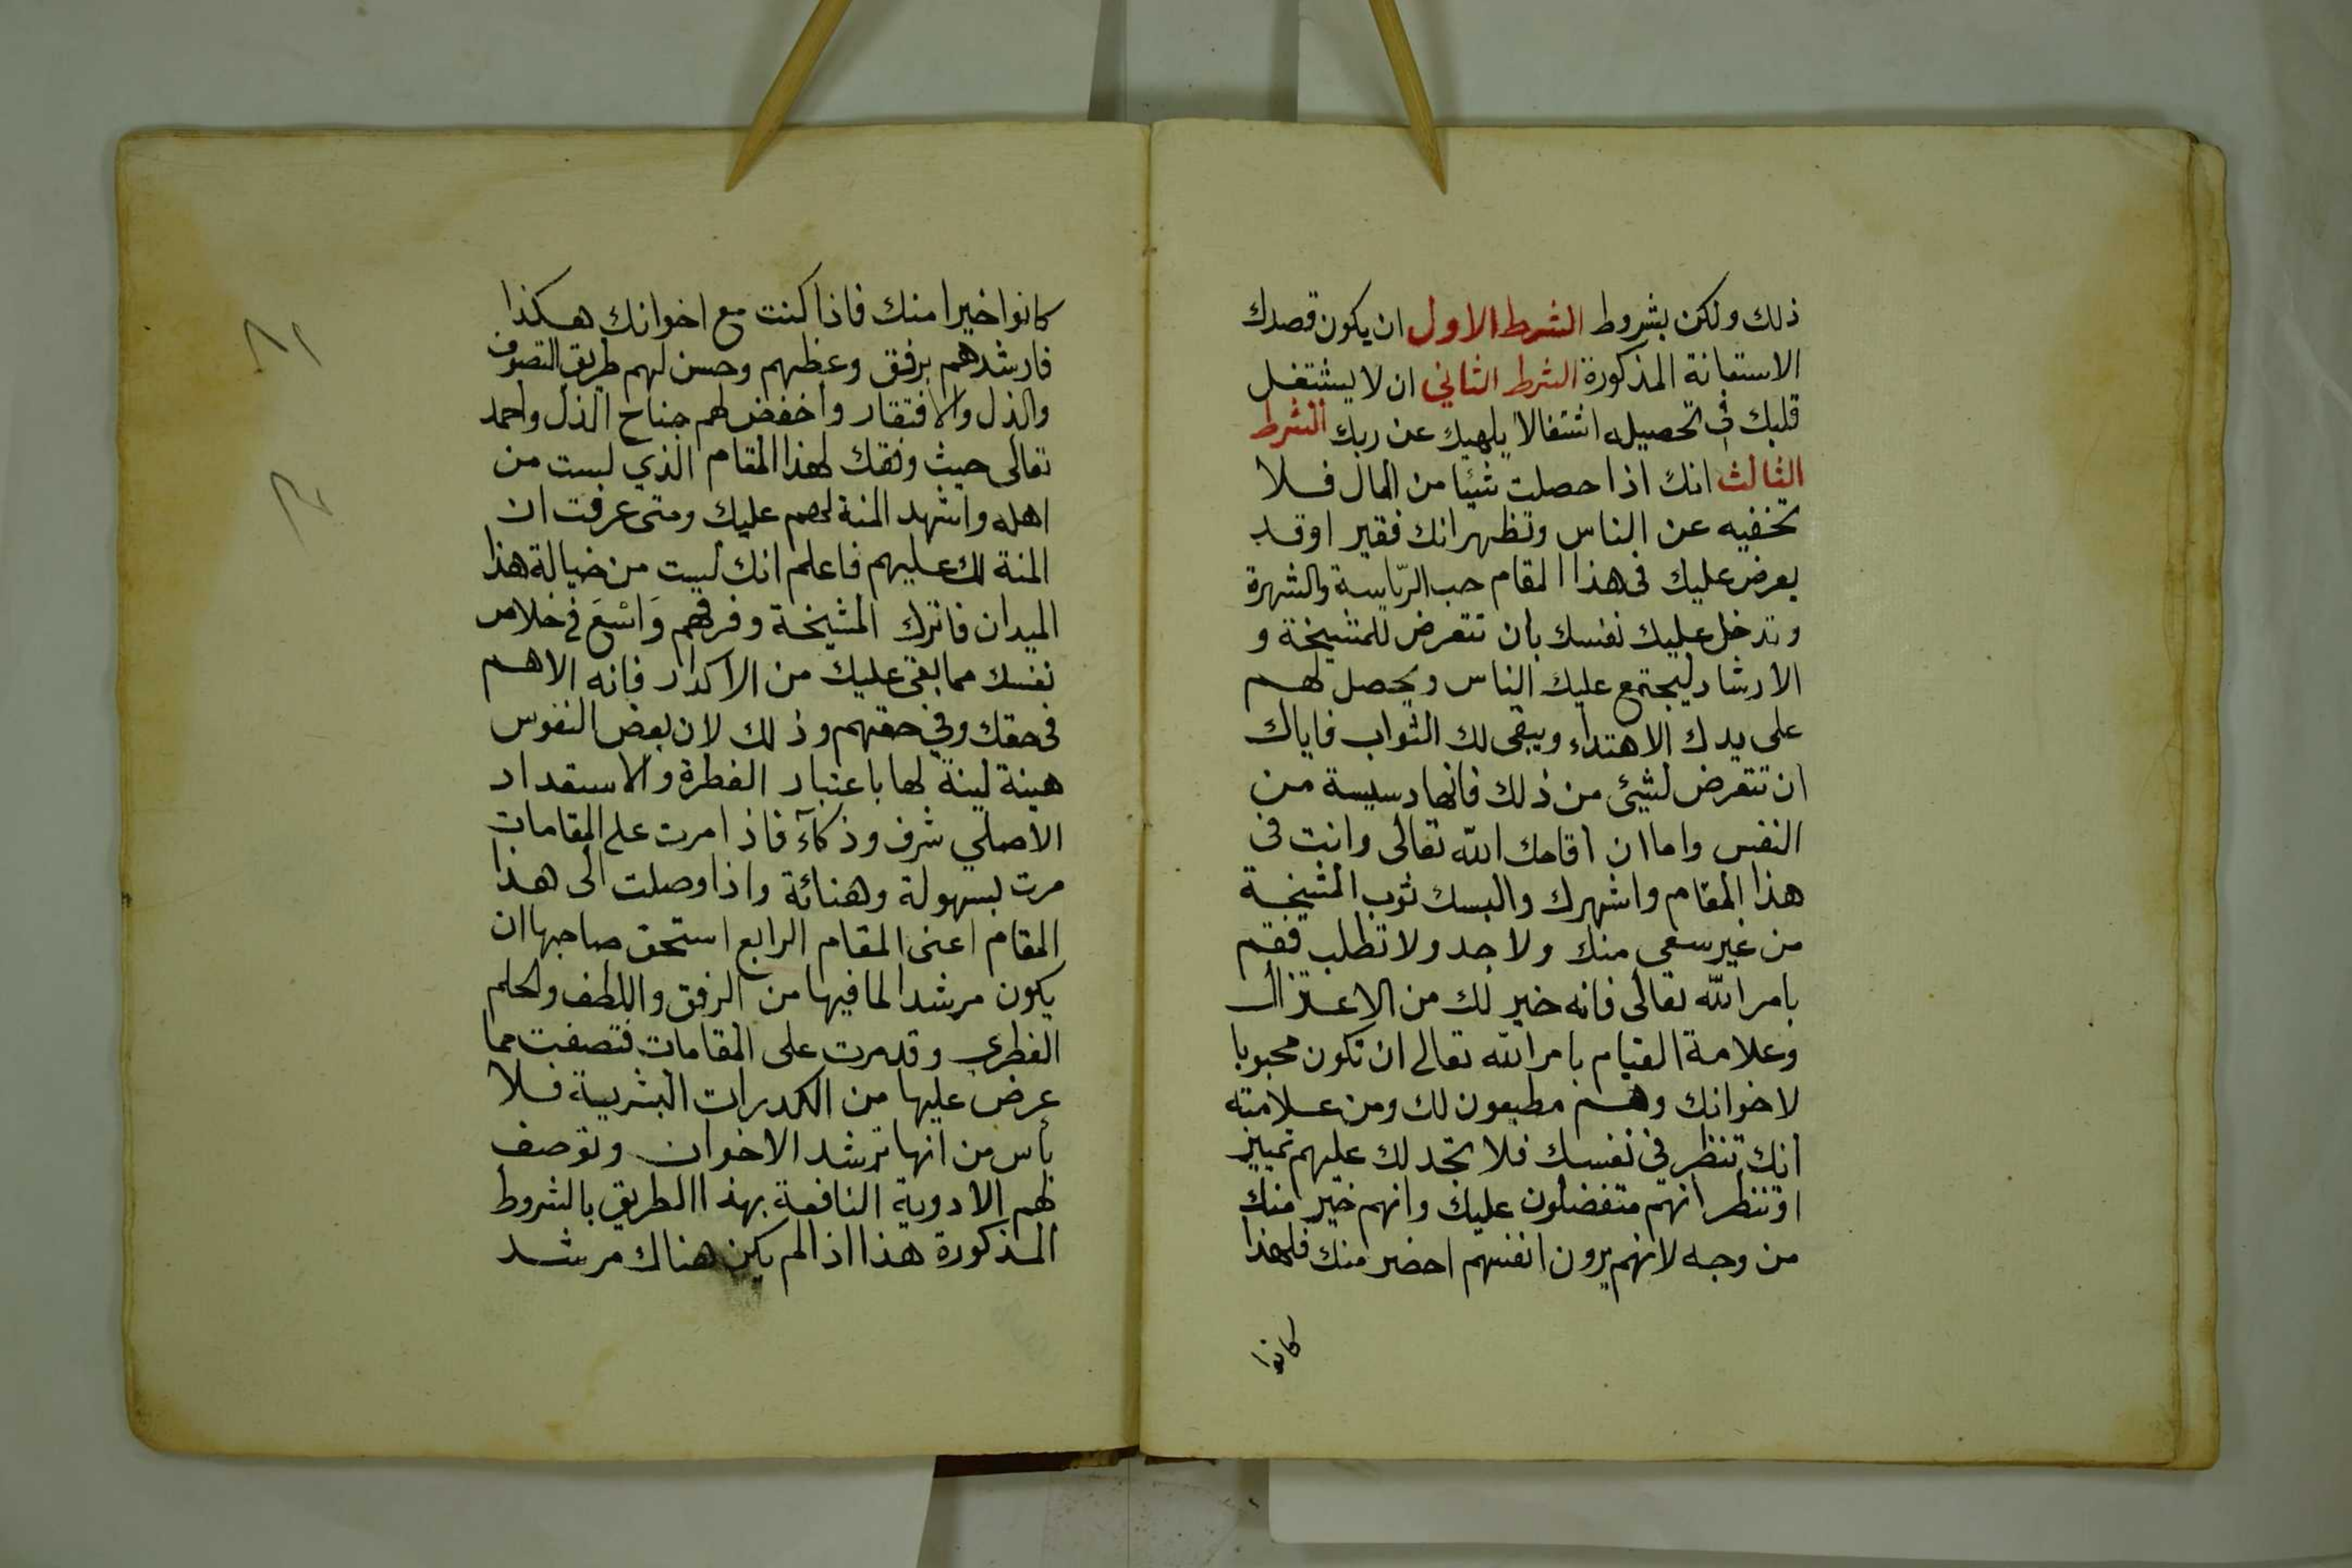 ذلك ولكن بشروط الشرط الاول ان يكون قصدك
الاستعانة المذكورة الشرط الثاني ان لا يشتغل
قلبك في تحصيله اشتغالا يلهيك عن ربك الشرط
الثالث انك اذا حصلت شيئا من المال فلا
تخفيه عن الناس وتظهر انك فقير او قد
يعرض عليك فى هذا المقام حب الرياسة والشهرة
وتدخل عليك نفسك بان تتعرض للمشيخة و
الارشاد ليجتمع عليك الناس ويحصل لهم
على يدك الاهتداء ويبقى لك الثواب فاياك
ان تتعرض لشيئ من ذلك فانها دسيسة من
النفس واما ان اقامك الله تعالى وانت فى
هذا المقام واشهرك والبسك ثوب المشيخة
من غير سعي منك ولا جد ولا تطلب فقم
بامر الله تعالى فانه خير لك من الاعتزال
وعلامة القيام بامر الله تعالى ان تكون محبوبا
لاخوانك وهم مطيعون لك ومن علامته
انك تنظر في نفسك فلا تجد لك عليهم تمييز
او تنظر انهم متفضلون عليك وانهم خير منك
من وجه لانهم يرون انفسهم احضر منك فلهذا
كانوا
كانوا خيرا منك فاذا كنت مع اخوانك هكذا
فارشدهم برفق وعظهم وحسن لهم طريق التصوف
والذل والافتقار واخفض لهم جناح الذل واحمد
تعالى حيث وفقك لهذا المقام الذي لست من
اهله واشهد المنة لهم عليك ومتى عرفت ان
المنة لك عليهم فاعلم انك لست من خيالة هذا
الميدان فاترك المشيخة وفرقهم وَاسْعَ في خلاص
نفسك مما بقي عليك من الاكدار فانه الاهم
فى حقك وفي حقهم وذلك لان بعض النفوس
هينة لينة لها باعتبار الفطرة والاستعداد
الاصلي شرف وذكآء فاذا مرت على المقامات
مرت بسهولة وهنائة واذا وصلت الى هذا
المقام اعنى المقام الرابع استحق صاحبها ان
يكون مرشدا لما فيها من الرفق واللطف والحلم
الفطري وقد مرت على المقامات فتصفت مما
عرض عليها من الكدرات البشرية فلا
بأس من انها ترشد الاخوان وتوصف
لهم الادوية النافعة بهذا الطريق بالشروط
المذكورة هذا اذا لم يكن هناك مرشد